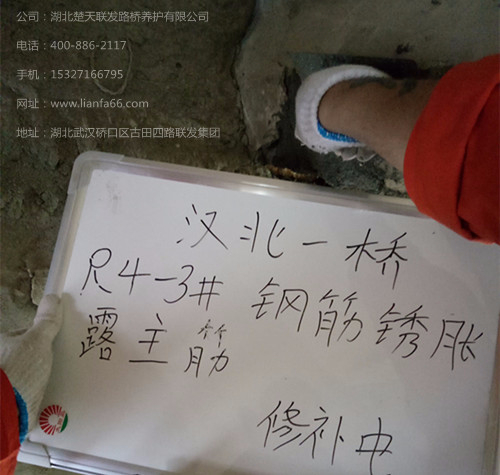 公司：湖北楚天联发路桥养护有限公司
电话：400-886-2117
手机：15327166795
网址：www.lianfa66.com
地址：湖北武汉硚口区古田四路联发集团
汉北一桥
R4-3# 钢筋锈胀
露主筋
修补中